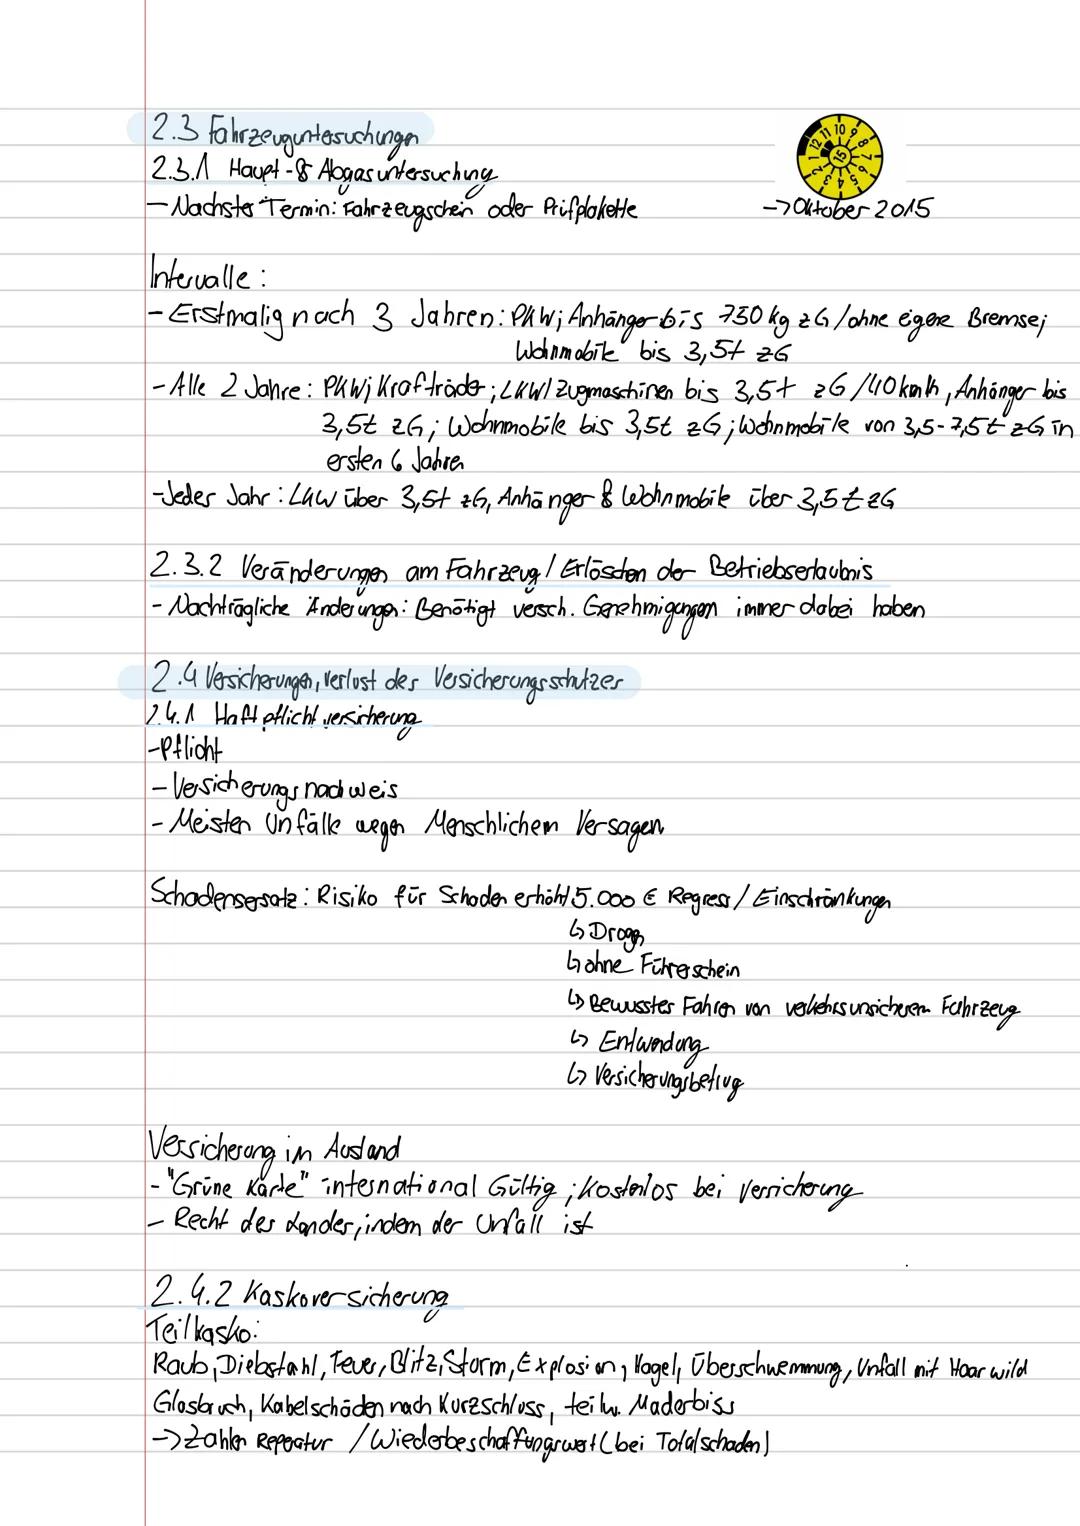 2.3 Fahrzeuguntersuchungen
2.3.1 Haupt-& Abgasuntersuchung
- Nächster Termin: Fahrzeugschein oder Prüfplakette
1 2 3 4 5 6 7 8 9 10 11 12
15
-> Oktober 2015
Intervalle:
- Erstmalig nach 3 Jahren: PKW; Anhänger bis 750 kg zG/ohne eigene Bremse;
Wohnmobile bis 3,5t zG
- Alle 2 Jahre: PKW; Krafträder; LKW/Zugmaschinen bis 3,5t zG/40 km/h, Anhänger bis
3,5t zG; Wohnmobile bis 3,5t zG; Wohnmobile von 3,5-7,5t zG in
ersten 6 Jahren
- Jedes Jahr: LKW über 3,5t zG, Anhänger & Wohnmobile über 3,5t zG
2.3.2 Veränderungen am Fahrzeug/ Erlöschen der Betriebserlaubnis
- Nachträgliche Änderungen: Benötigt versch. Genehmigungen immer dabei haben
2.4 Versicherungen, Verlust des Versicherungsschutzes
2.4.1 Haftpflichtversicherung
- Pflicht
- Versicherungsnachweis
- Meisten Unfälle wegen Menschlichem Versagen
Schadensersatz: Risiko für Schaden erhöht/5.000 € Regress/Einschränkungen
↳ Drogen
↳ ohne Führerschein
↳ Bewusstes Fahren von verkehrsunsicherem Fahrzeug
↳ Entwendung
↳ Versicherungsbetrug
Versicherung im Ausland
- "Grüne Karte" international Gültig; Kostenlos bei Versicherung
- Recht des Landes, indem der Unfall ist
2.4.2 Kaskoversicherung
Teilkasko:
Raub, Diebstahl, Feuer, Blitz, Sturm, Explosion, Hagel, Überschwemmung, Unfall mit Haarwild
Glasbruch, Kabelschäden nach Kurzschluss, teilw. Maderbiss
-> Zahlen Reperatur /Wiederbeschaffungswert (bei Totalschaden)